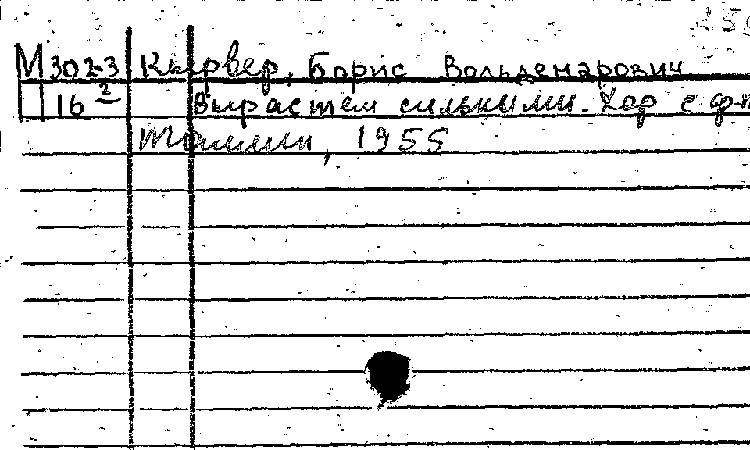 М 3023 Кырвер, Борис Вольдемарович
16 2 Вырастем сильными. Хор с ф-п
Таллин, 1955